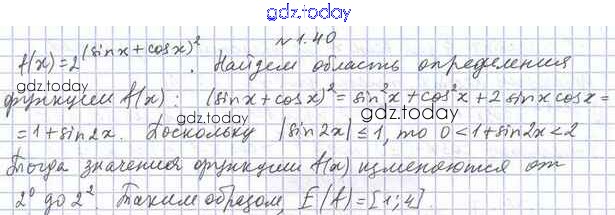 gdz.today
№1.40
f(x)=2^(sinx+cosx)². Найдем область определения
gdz.today
gdz.today
функции f(x): (sinx+cosx)²=sin²x+cos²x+2sinxcosx=
=1+sin2x. Поскольку |sin2x|≤1, то 0<1+sin2x<2
gdz.today
gdz.today
Тогда значения функции f(x) изменяются от
2⁰ до 2². Таким образом, E(f)=[1;4].
gdz.today
gdz.today